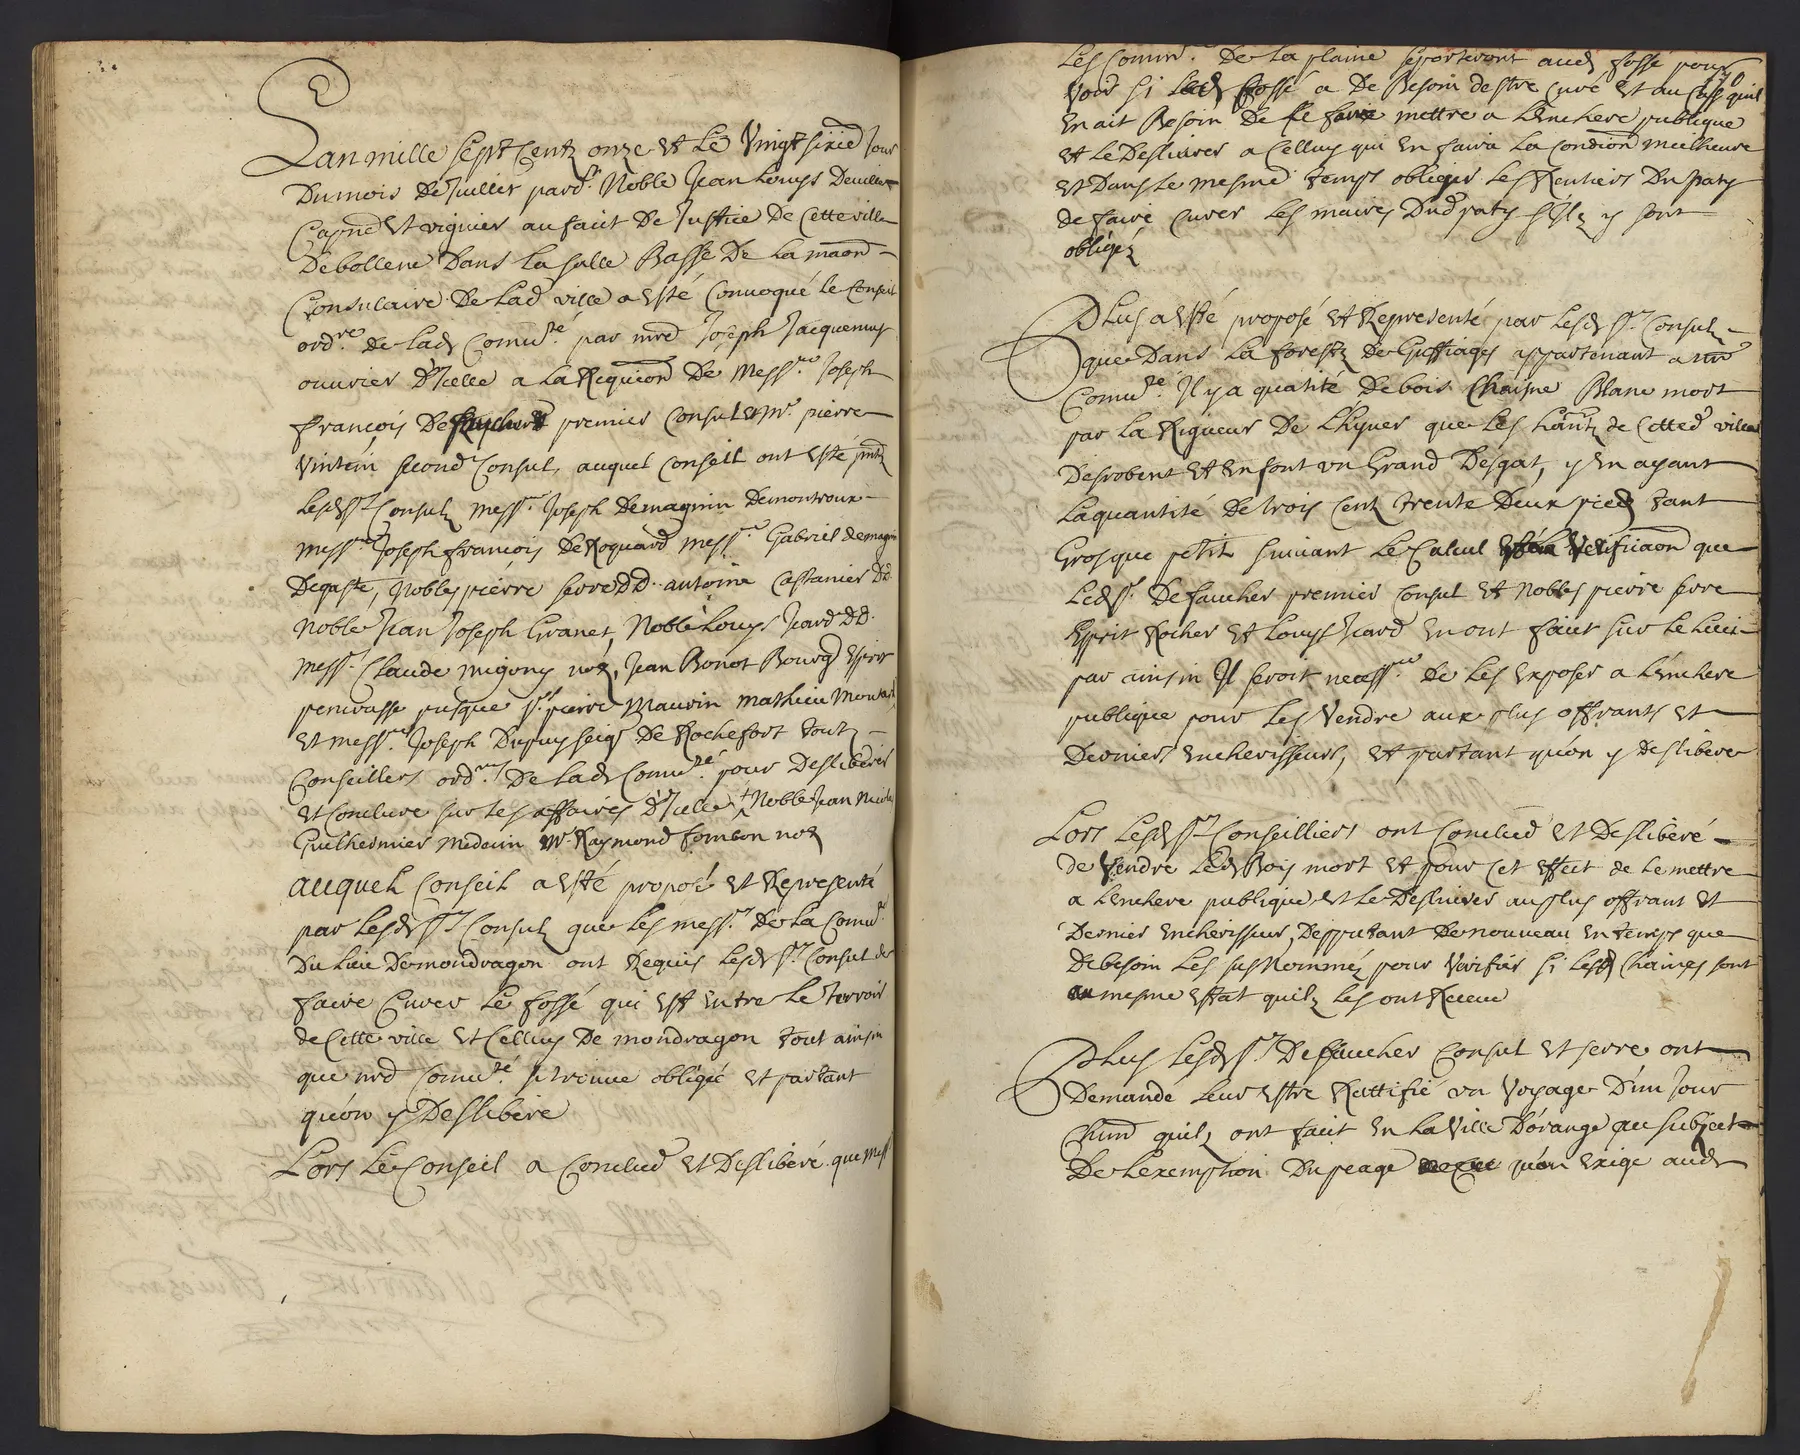 Lan mille sept centz onze et le vingt sixie jour
du mois de Juillet pard.t Noble Jean Louys
Capne et viguier au fait de Justice de cette ville
de bollene dans la salle basse de la maon
Consulaire de lad ville a esté convoqué le conseil
ord.re de lad comu.té par mre Joseph Jacquemus
ouvrier d'Icelle a la Requion de Mess.re Joseph
françois de faucher premier consul et mr. pierre
vintein second consul, auquel conseil ont esté pntz
lesd srs Consulz mess.re Joseph Demagnin Demontroux
mess.re Joseph françois de Roquard mess.re Gabriel demagnin
Degaste, Nobles pierre serre DD. antoine castanier DD.
Noble Jean Joseph Granet, Noble Louys Icard DD.
mess.rs Claude migony nore, Jean Bonot Bourgs Esprit
sr. pierre Mauvin mathieu
et mess.re Joseph Dupuy seigr de Rochefort toutz
Conseillers ord.res de lad Comu.té pour deslibérer
et conclure sur les affaires d'Icelle + Noble Jean Nicolas
Guilhermier Medecin mr. Raymond fombon nore
auquel conseil a esté proposé et Représenté
par lesd srs Consulz que les mess.rs de la Comu.té
du lieu de mondragon ont Requis lesd srs Consul de
faire curer le fossé qui est entre le terroir
de cette ville et celluy de mondragon tout ainsin
que nred comu.té se trouve obligée et partant
qu'on y deslibère
Lors le conseil a conclud et deslibéré que mess
les comm.res de la plaine se porteront aud fossé pour
voir si led fossé a de besoin d'estre curé et au cas qu'il
en ait besoin de le faire mettre a l'enchere publique
et le deslivrer a celluy qui en faira la condion meilheure
et dans le mesme temps obliger les Rentiers du paty
de faire curer les maires dud paty s'ilz y sont
obligéz
Plus a esté proposé et Représenté par lesd srs Consulz
que dans la forestz de Guffiages appartenant a nre
Comu.té Il y a quatité de bois Chaisne blanc mort
par la Rigueur de l'hyver que les hantz de cetted ville
desrobent et en font un grand desgat, y en ayant
la quantité de trois centz trente deux piedz tant
gros que petit suivant le calcul et la verificaon que
led sr. de faucher premier consul et nobles pierre serre
Esprit Rocher et Louys Icard en ont fait sur le lieu
par ainsin Il seroit necess.re de les exposer a l'enchere
publique pour les vendre aux plus offrants et
derniers encherisseurs, et partant qu'on y deslibère
Lors lesd srs Conseilliers ont conclud et deslibéré
de vendre led bois mort et pour cet effect de le mettre
a l'enchere publique et le deslivrer au plus offrant et
dernier encherisseur, desputant de nouveau en temps que
de besoin les susnomméz pour verifier si lesd chaines sont
au mesme estat qu'ilz les ont Receu
Plus lesd srs De faucher Consul et serre ont
demandé leur estre Rattifié un voyage d'un jour
chun qu'ilz ont fait en la ville d'orange au subject
de l'exemption du peage qu'on exige aud